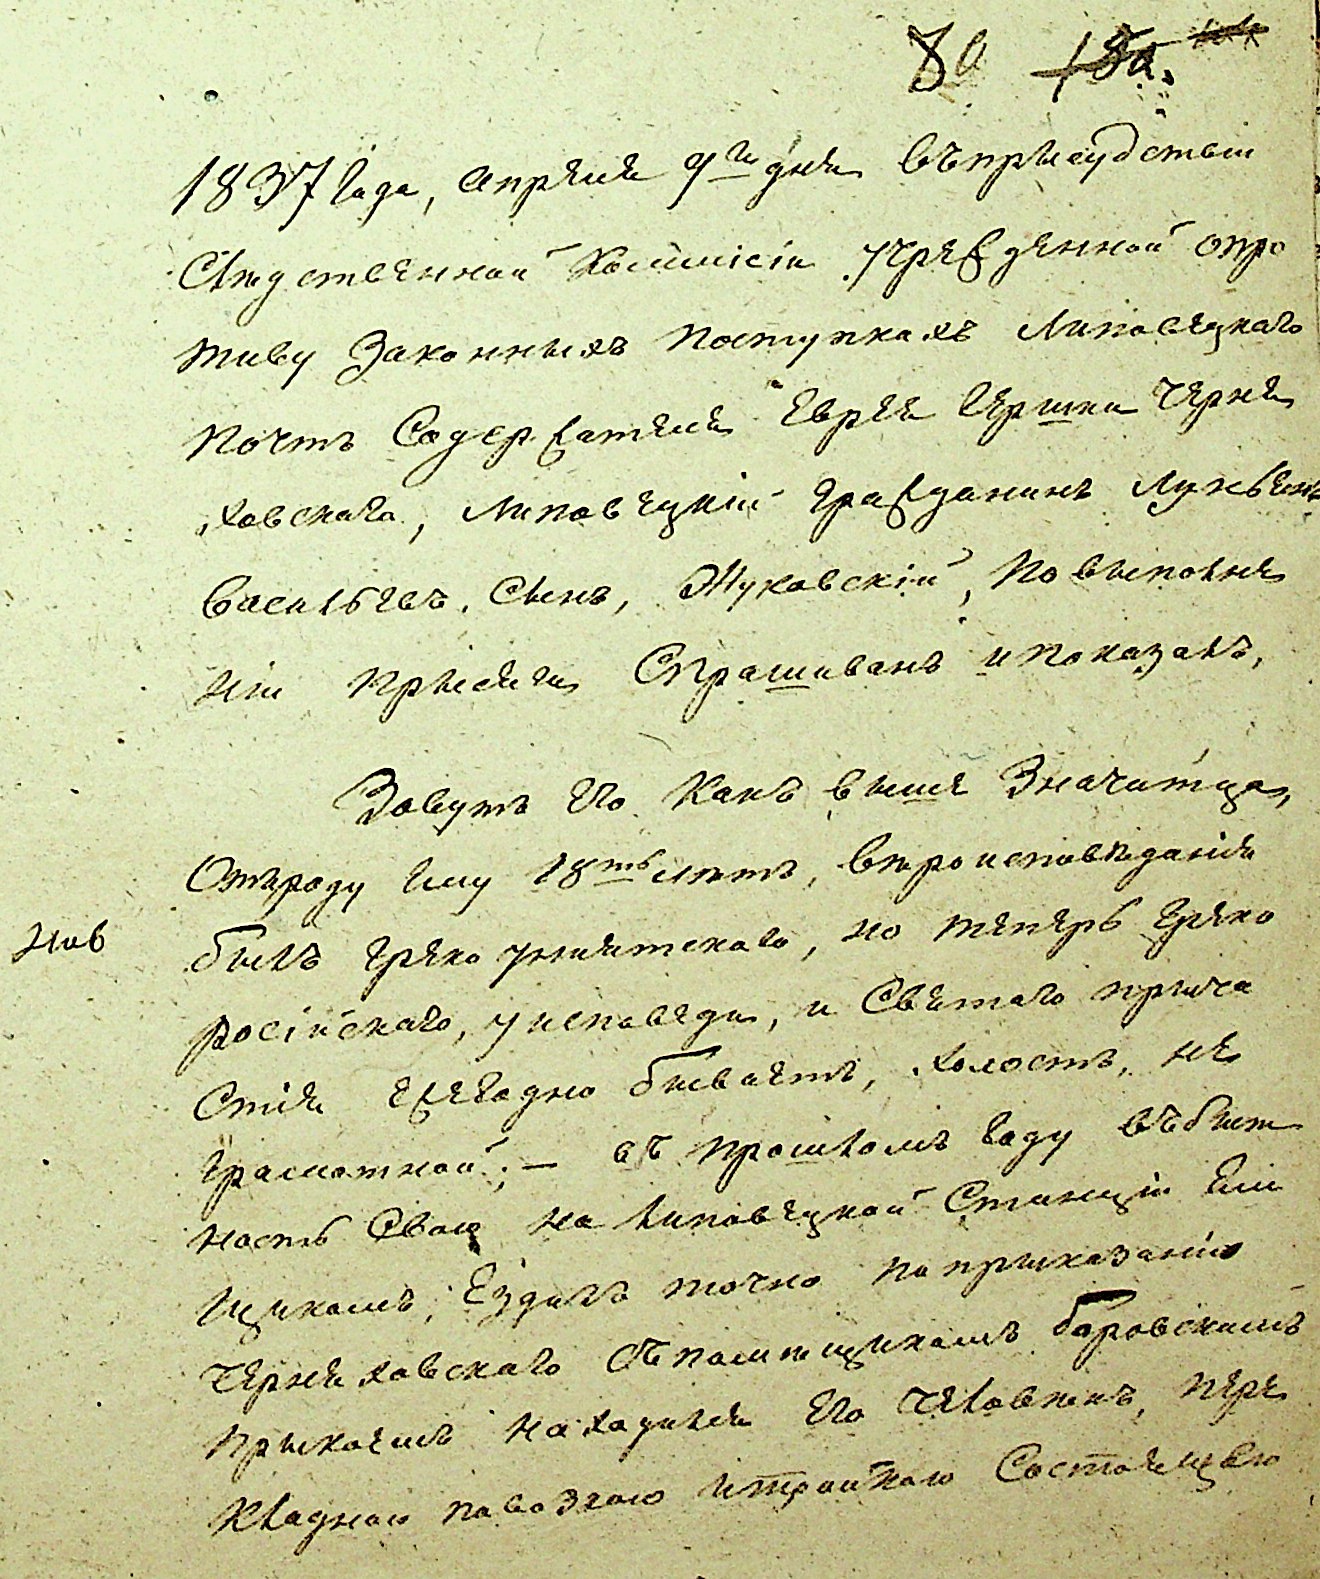 80 18а.
1837 Года, Апреля 9го дня въприсудствіи
Следственной Коммисіи учрежденной опро
тиву Законныхъ поступкахъ Липовецкаго
почтъ Содержателя Еврея Гершки Черня
ховскаго, Липовецкій гражданинъ Лукьянъ
Васильевъ Сынъ, Жуковскій, повыполне
ніи присяги Спрашиванъ ипоказалъ,
Зовутъ его какъ выше Значитца,
Отъроду Ему 18ть летъ, веро исповеданія
былъ Греко униятскаго, но теперь Греко
російскаго, уисповеди, и Святаго прича
стія ежегодно бываетъ, холостъ, не
грамотной; — въ прошломъ Году въбыт
ность Свою на Липовецкой Станціи Ем
щикомъ, Ездилъ точно поприказанію
Черняховскаго съпомещикомъ Боровскимъ
прикоемъ находился его человекъ, пере
кладною повозкою итройкою Состоящею
Нов